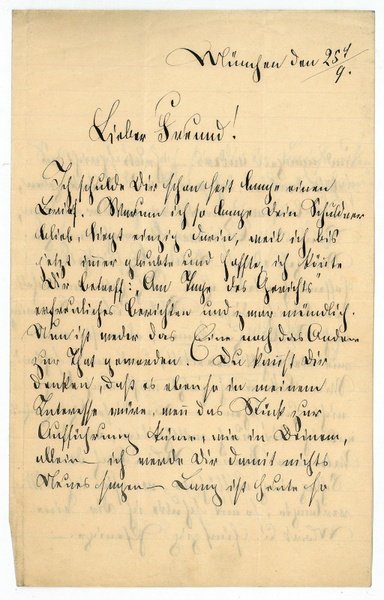 München den 25/9.
Lieber Freund!
Ich schulde Dir schon seit lange einen
Brief. Warum ich so lange Dein Schuldner
blieb, liegt einzig darin, weil ich bis
jetzt immer glaubte und hoffte, ich könnte
Dir betreff: „Am Tage des Gerichts“
erfreuliches berichten und zwar mündlich.
Nun ist weder das Eine noch das Andere
zur That geworden. Du kannst Dir
denken, daß es ebenso in meinem
Interesse wäre, wenn das Stück zur
Aufführung käme, wie in Deinem,
allein – ich werde Dir damit nichts
Neues sagen – Lang ist heute so